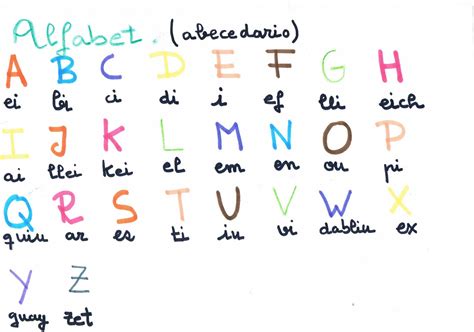 Alfabet. (abecedario)
A B C D E F G H
ei bi ci di i ef lli eich
I J K L M N O P
ai llei kei el em en ou pi
Q R S T U V W X
quiu ar es ti iu vi dabliu ex
Y Z
guay zet